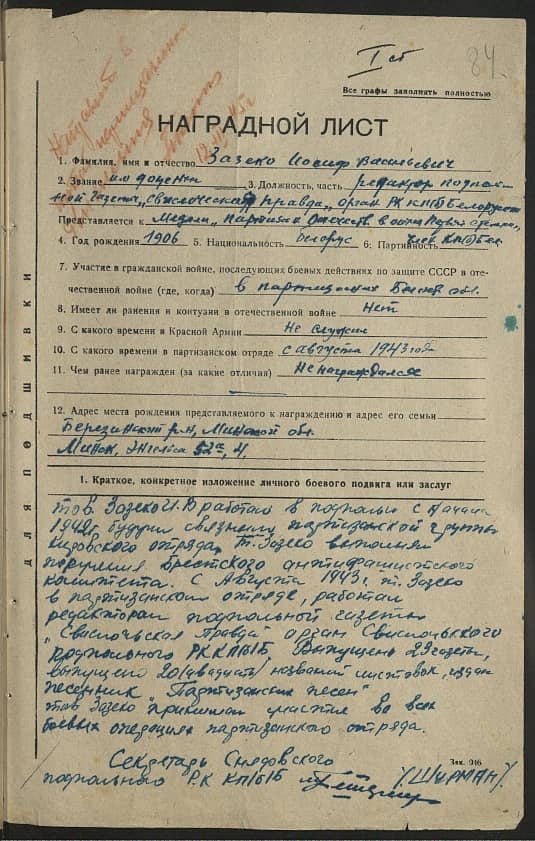 I сб
84.
Все графы заполнять полностью
НАГРАДНОЙ ЛИСТ
1. Фамилия, имя и отчество Зазеко Иосиф Васильевич
2. Звание 3. Должность, часть редактор подполь-
ной газеты „Свислочская правда", орган РК КП(б) Белоруссии
Представляется к Медали „партизан Отечеств. войны первой степени"
4. Год рождения 1906 5. Национальность белорус 6. Партийность член КП(б)Б
7. Участие в гражданской войне, последующих боевых действиях по защите СССР в оте-
чественной войне (где, когда) в партизанах обл.
8. Имеет ли ранения и контузии в отечественной войне Нет
9. С какого времени в Красной Армии Не служил
10. С какого времени в партизанском отряде с августа 1943 года
11. Чем ранее награжден (за какие отличия) Не награждался
12. Адрес места рождения представляемого к награждению и адрес его семьи
Березинский р-н, Минской обл.
Минск, Энгельса 52а, 4.
ДЛЯ ПОДШИВКИ
1. Краткое, конкретное изложение личного боевого подвига или заслуг
тов. Зазеко И.В работал в подполье с начала
1942г будучи связным партизанской группы
Кировского отряда, т. Зазеко выполнял
поручения Брестского антифашистского
комитета. С Августа 1943г. т. Зазеко
в партизанском отряде, работал
редактором подпольной газеты
„Свислочьская Правда орган Свислочьского
подпольного РККП/б/Б. Выпущено 29 газеты,
выпущено 20/двадцать/ названий листовок, издан
песенник „Партизанских песен"
тов Зазеко принимал участие во всех
боевых операциях партизанского отряда.
Секретарь
подпольного Р.К КП/б/Б /Шурман/.
Зак. 946